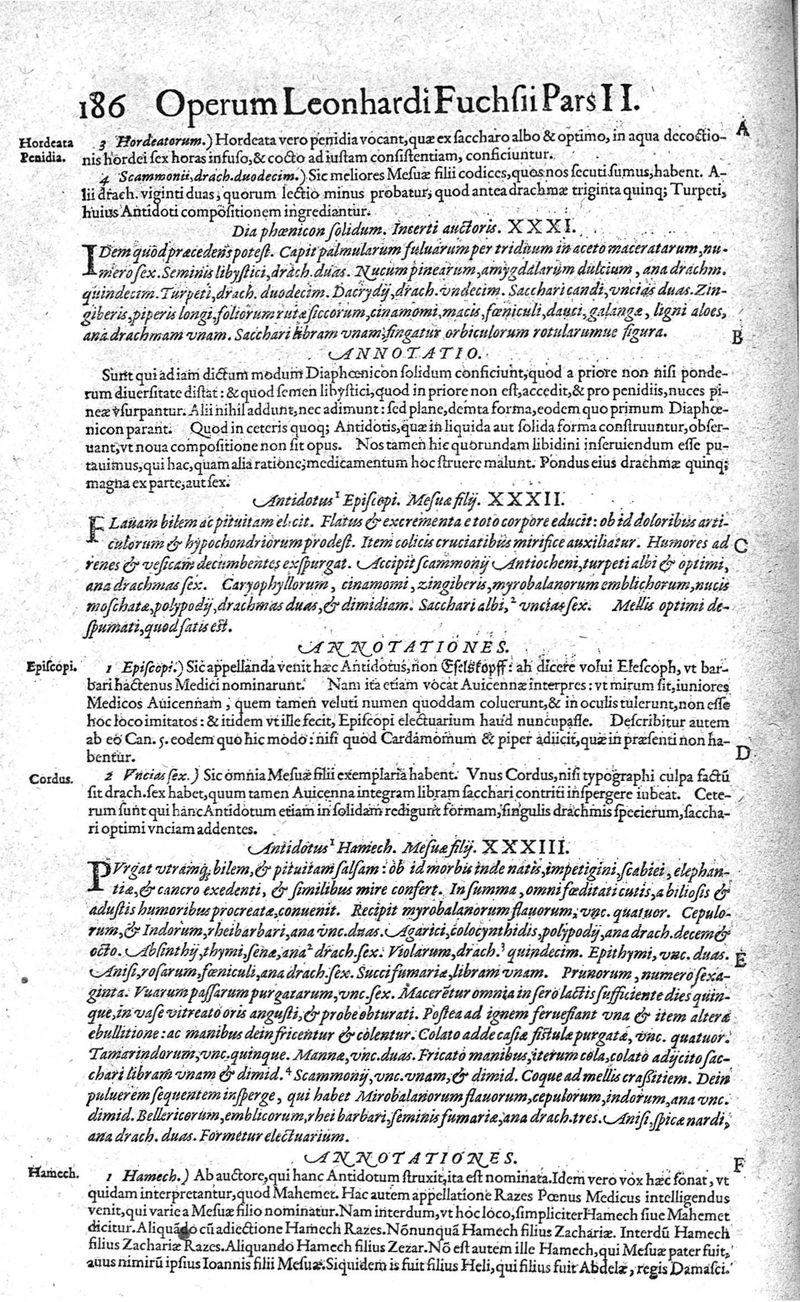 186 Operum Leonhardi Fuchſii Pars II.
A
Hordeata
Penidia.
3 Hordeatorum.) Hordeata vero penidia vocant, quæ ex ſaccharo albo & optimo, in aqua decoctio-
nis hordei ſex horas infuſo, & cocto ad iuſtam conſiſtentiam, conficiuntur.
4 Scammonii, drach. duodecim.) Sic meliores Meſuæ filii codices, quos nos ſecuti ſumus, habent. A-
lii drach. viginti duas, quorum lectio minus probatur, quod antea drachmæ triginta quinq; Turpeti,
huius Antidoti compoſitionem ingrediantur.
Dia phœnicon ſolidum. Incerti auctoris. XXXI.
IDem quod præcedens poteſt. Capit palmularum fuluarum per triduum in aceto maceratarum, nu-
mero ſex. Seminis libyſtici, drach. duas. Nucum pinearum, amygdalarum dulcium, ana drachm.
quindecim. Turpeti, drach. duodecim. Dacrydij, drach. vndecim. Sacchari candi, vncias duas. Zin-
giberis, piperis longi, foliorum rutæ ſiccorum, cinamomi, macis, fœniculi, dauci, galangæ, ligni aloes,
ana drachmam vnam. Sacchari libram vnam, fingatur orbiculorum rotularumue figura.
B
ANNOTATIO.
Sunt qui ad iam dictum modum Diaphœnicon ſolidum conficiunt, quod a priore non niſi ponde-
rum diuerſitate diſtat: & quod ſemen libyſtici, quod in priore non eſt, accedit, & pro penidiis, nuces pi-
neæ vſurpantur. Alii nihil addunt, nec adimunt: ſed plane, demta forma, eodem quo primum Diaphœ-
nicon parant. Quod in ceteris quoq; Antidotis, quæ in liquida aut ſolida forma conſtruuntur, obſer-
uant, vt noua compoſitione non ſit opus. Nos tamen hic quorundam libidini inſeruiendum eſſe pu-
tauimus, qui hac, quam alia ratione, medicamentum hoc ſtruere malunt. Pondus eius drachmæ quinq;
magna ex parte, aut ſex.
Antidotus¹ Epiſcopi. Meſuæ filij. XXXII.
FLauam bilem ac pituitam elicit. Flatus & excrementa e toto corpore educit: ob id doloribus arti-
culorum & hypochondriorum prodeſt. Item colicis cruciatibus mirifice auxiliatur. Humores ad
C
renes & veſicam decumbentes exſpurgat. Accipit ſcammonij Antiocheni, turpeti albi & optimi,
ana drachmas ſex. Caryophyllorum, cinamomi, zingiberis, myrobalanorum emblichorum, nucis
moſchatæ, polypodij, drachmas duas, & dimidiam. Sacchari albi,² vncias ſex. Mellis optimi de-
ſpumati, quod ſatis eſt.
ANNOTATIONES.
Epiſcopi.
1 Epiſcopi.) Sic appellanda venit hæc Antidotus, non Eſelskopff: ah dicere volui Eleſcoph, vt bar-
bari hactenus Medici nominarunt. Nam ita etiam vocat Auicennæ interpres: vt mirum ſit, iuniores
Medicos Auicennam, quem tamen veluti numen quoddam coluerunt, & in oculis tulerunt, non eſſe
hoc loco imitatos: & itidem vt ille fecit, Epiſcopi electuarium haud nuncupaſſe. Deſcribitur autem
ab eo Can. 5. eodem quo hic modo: niſi quod Cardamomum & piper adiicit, quæ in præſenti non ha-
bentur.
D
Cordus.
2 Vncias ſex.) Sic omnia Meſuæ filii exemplaria habent. Vnus Cordus, niſi typographi culpa factū
ſit drach. ſex habet, quum tamen Auicenna integram libram ſacchari contriti inſpergere iubeat. Cete-
rum ſunt qui hanc Antidotum etiam in ſolidam redigunt formam, ſingulis drachmis ſpecierum, ſaccha-
ri optimi vnciam addentes.
Antidotus¹ Hamech. Meſuæ filij. XXXIII.
PVrgat vtramq; bilem, & pituitam ſalſam: ob id morbis inde natis, impetigini, ſcabiei, elephan-
tiæ, & cancro exedenti, & ſimilibus mire confert. In ſumma, omni fœditati cutis, a bilioſis &
aduſtis humoribus procreatæ, conuenit. Recipit myrobalanorum flauorum, vnc. quatuor. Cepulo-
rum, & Indorum, rhei barbari, ana vnc. duas. Agarici, colocynthidis, polypodij, ana drach. decem &
octo. Abſinthij, thymi, ſenæ, ana² drach. ſex. Violarum, drach.³ quindecim. Epithymi, vnc. duas.
E
Aniſi, roſarum, fœniculi, ana drach. ſex. Succi fumariæ, libram vnam. Prunorum, numero ſexa-
ginta. Vuarum paſſarum purgatarum, vnc. ſex. Macerētur omnia in ſero lactis ſufficiente dies quin-
que, in vaſe vitreato oris anguſti, & probe obturati. Poſtea ad ignem ferueſiant vna & item altera
ebullitione: ac manibus dein fricentur & colentur. Colato adde caſiæ fiſtulæ purgatæ, vnc. quatuor.
Tamarindorum, vnc. quinque. Mannæ, vnc. duas. Fricato manibus, iterum cola, colato adijcito ſac-
chari libram vnam & dimid.⁴ Scammonij, vnc. vnam, & dimid. Coque ad mellis craſſitiem. Dein
puluerem ſequentem inſperge, qui habet Mirobalanorum flauorum, cepulorum, indorum, ana vnc.
dimid. Bellericorum, emblicorum, rhei barbari, ſeminis fumariæ, ana drach. tres. Aniſi, ſpicæ nardi,
ana drach. duas. Formetur electuarium.
ANNOTATIONES.
F
Hamech.
1 Hamech.) Ab auctore, qui hanc Antidotum ſtruxit, ita eſt nominata. Idem vero vox hæc ſonat, vt
quidam interpretantur, quod Mahemet. Hac autem appellatione Razes Pœnus Medicus intelligendus
venit, qui varie a Meſuæ filio nominatur. Nam interdum, vt hoc loco, ſimpliciter Hamech ſiue Mahemet
dicitur. Aliquādo cū adiectione Hamech Razes. Nōnunquā Hamech filius Zachariæ. Interdū Hamech
filius Zachariæ Razes. Aliquando Hamech filius Zezar. Nō eſt autem ille Hamech, qui Meſuæ pater fuit,
auus nimirū ipſius Ioannis filii Meſuæ. Siquidem is fuit filius Heli, qui filius fuit Abdelæ, regis Damaſci.